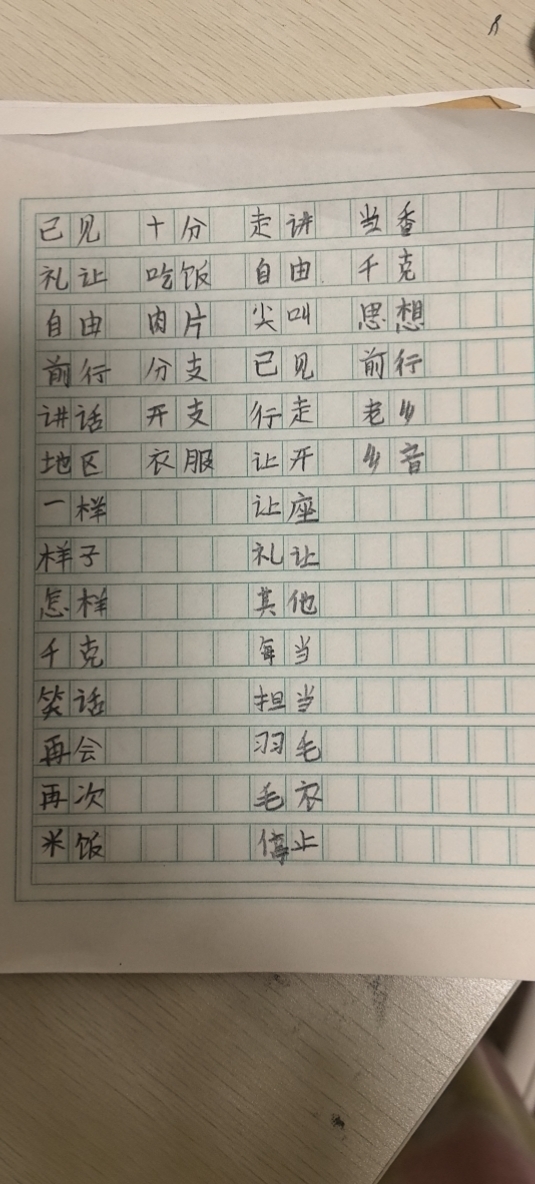 已见 十分 走进 当香
礼让 吃饭 自由 千克
自由 肉片 尖叫 思想
前行 分支 已见 前行
讲话 开支 行走 老乡
地区 衣服 让开 乡音
一样 让座
样子 礼让
怎样 其他
千克 每当
笑话 担当
再会 羽毛
再次 毛衣
米饭 停止